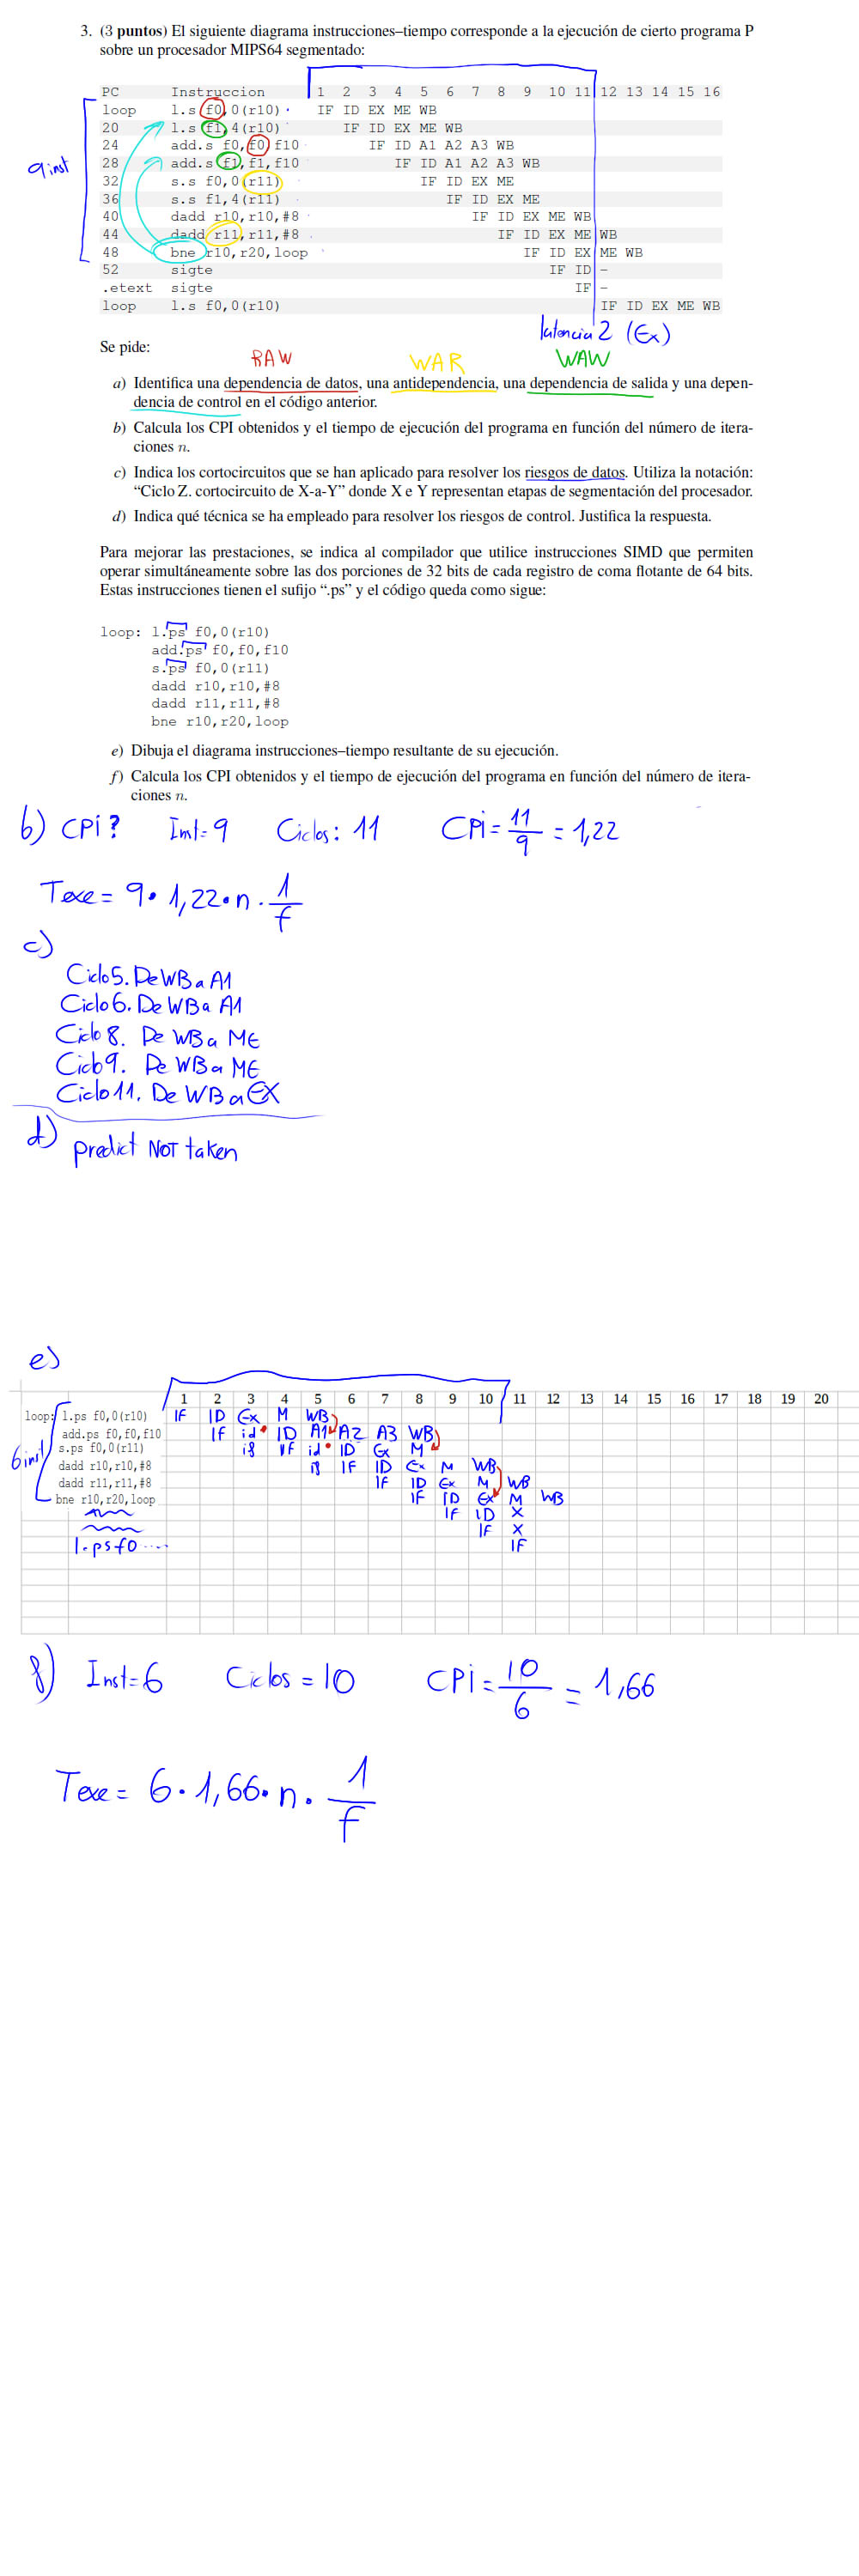 3. (3 puntos) El siguiente diagrama instrucciones–tiempo corresponde a la ejecución de cierto programa P
sobre un procesador MIPS64 segmentado:
PC Instruccion 1 2 3 4 5 6 7 8 9 10 11 12 13 14 15 16
loop l.s f0,0(r10) IF ID EX ME WB
20 l.s f1,4(r10) IF ID EX ME WB
24 add.s f0,f0,f10 IF ID A1 A2 A3 WB
28 add.s f1,f1,f10 IF ID A1 A2 A3 WB
9 inst
32 s.s f0,0(r11) IF ID EX ME
36 s.s f1,4(r11) IF ID EX ME
40 dadd r10,r10,#8 IF ID EX ME WB
44 dadd r11,r11,#8 IF ID EX ME WB
48 bne r10,r20,loop IF ID EX ME WB
52 sigte IF ID –
.etext sigte IF –
loop l.s f0,0(r10) IF ID EX ME WB
latencia 2 (Ex)
Se pide:
RAW WAR WAW
a) Identifica una dependencia de datos, una antidependencia, una dependencia de salida y una depen-
dencia de control en el código anterior.
b) Calcula los CPI obtenidos y el tiempo de ejecución del programa en función del número de itera-
ciones n.
c) Indica los cortocircuitos que se han aplicado para resolver los riesgos de datos. Utiliza la notación:
“Ciclo Z. cortocircuito de X-a-Y” donde X e Y representan etapas de segmentación del procesador.
d) Indica qué técnica se ha empleado para resolver los riesgos de control. Justifica la respuesta.
Para mejorar las prestaciones, se indica al compilador que utilice instrucciones SIMD que permiten
operar simultáneamente sobre las dos porciones de 32 bits de cada registro de coma flotante de 64 bits.
Estas instrucciones tienen el sufijo “.ps” y el código queda como sigue:
loop: l.ps f0,0(r10)
add.ps f0,f0,f10
s.ps f0,0(r11)
dadd r10,r10,#8
dadd r11,r11,#8
bne r10,r20,loop
e) Dibuja el diagrama instrucciones–tiempo resultante de su ejecución.
f) Calcula los CPI obtenidos y el tiempo de ejecución del programa en función del número de itera-
ciones n.
b) CPI? Inst=9 Ciclos: 11 CPI = 11/9 = 1,22
Texe = 9 · 1,22 · n · 1/f
c)
Ciclo 5. De WB a A1
Ciclo 6. De WB a A1
Ciclo 8. De WB a ME
Ciclo 9. De WB a ME
Ciclo 11. De WB a EX
d) predict NOT taken
e)
1 2 3 4 5 6 7 8 9 10 11 12 13 14 15 16 17 18 19 20
loop: l.ps f0,0(r10) IF ID Ex M WB
add.ps f0,f0,f10 IF id ID A1 A2 A3 WB
s.ps f0,0(r11) if IF id ID Ex M
6 inst
dadd r10,r10,#8 if IF ID Ex M WB
dadd r11,r11,#8 IF ID Ex M WB
bne r10,r20,loop IF ID Ex M WB
IF ID X
IF X
l.ps f0 .... IF
f) Inst=6 Ciclos = 10 CPI = 10/6 = 1,66
Texe = 6 · 1,66 · n · 1/f